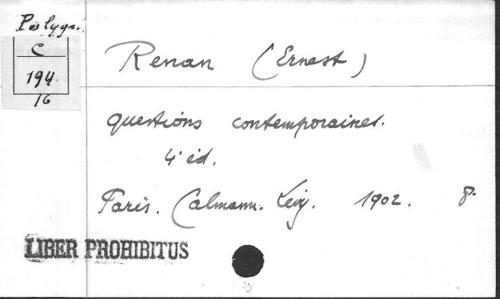 Polygr.
C
194
16
Renan (Ernest)
questions contemporaines.
4e éd.
Paris. Calmann-Levy. 1902. 8.
LIBER PROHIBITUS